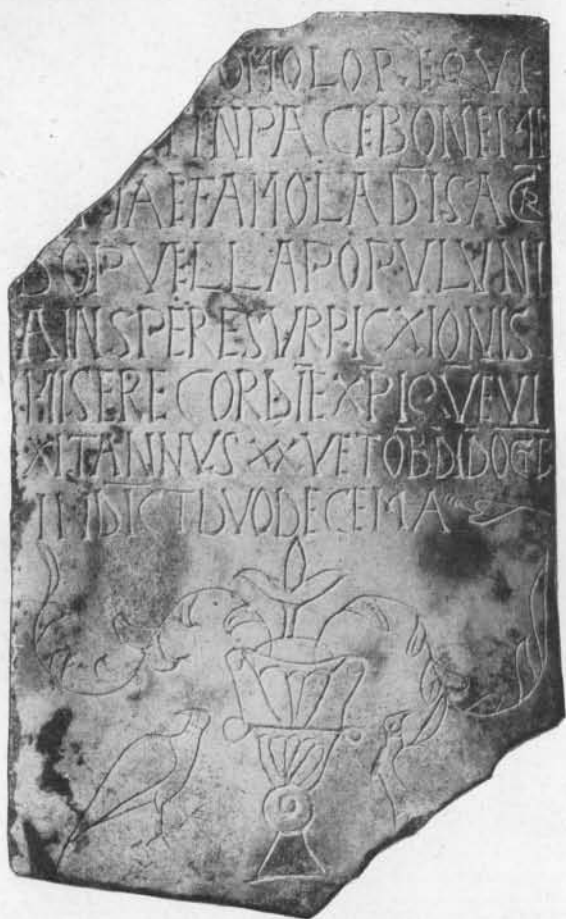 OMOLO REQVI-
IN PACE BONE ME
IA ET AMOLADIS ACR
DO PVELLA POPVLVNI
A IN SPE RESVRRICXIONIS
MISERECORDIE XPI QVE VI
XIT ANNVS XXV ET OB
INDICT DVODECEMA